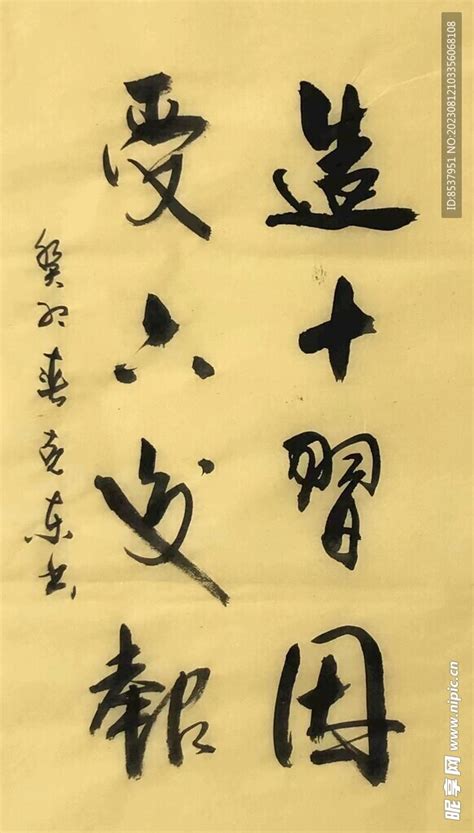 造十習因
受六交報
癸卯春克东书
ID:8537951 NO:20230812103356068108
昵享网 www.nipic.cn